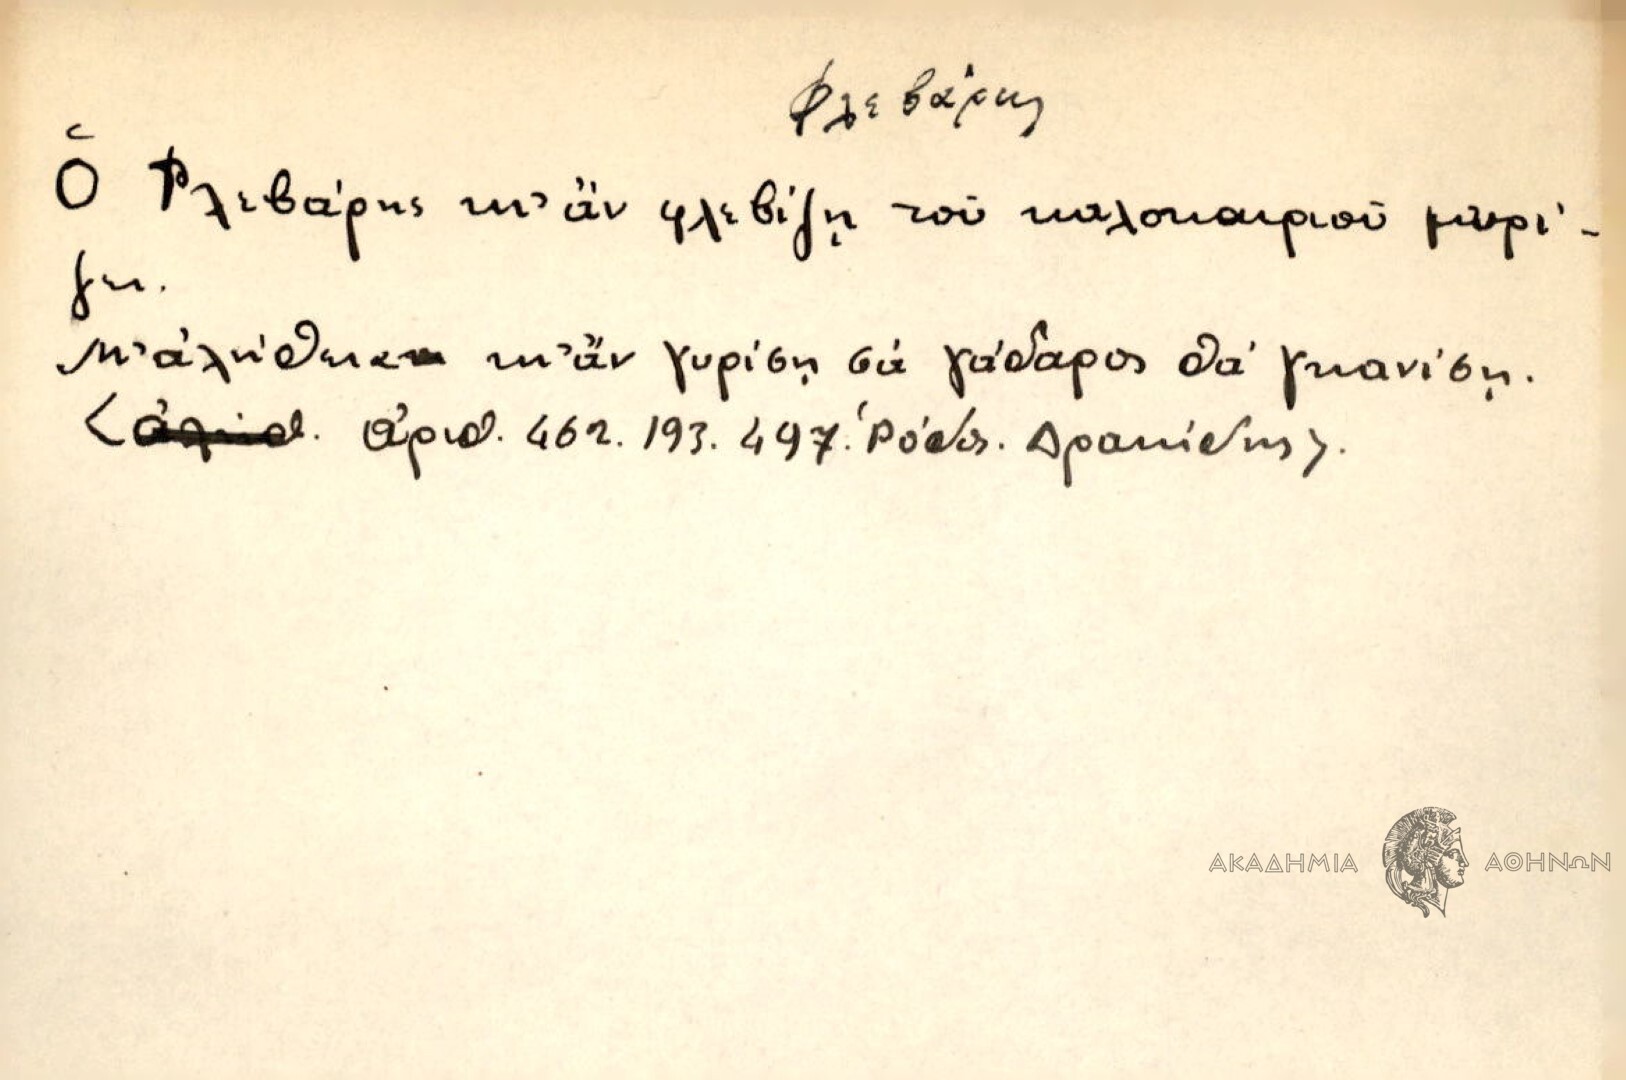 Φλεβάρης
Ὁ Φλεβάρης κι' ἂν φλεβίζῃ τοῦ καλοκαιριοῦ μυρί-
ζει.
κι' ἂν γυρίσῃ σὰ γάδαρος θὰ γκανίσῃ.
ἀριθ. 462. 193. 497. Ῥόδος. Δρακίδης).
ΑΚΑΔΗΜΙΑ ΑΘΗΝΩΝ